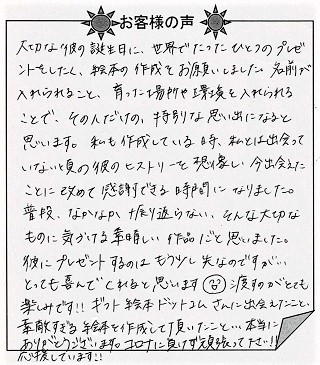 お客様の声
大切な彼の誕生日に、世界でたったひとつのプレゼ
ントをしたく、絵本の作成をお願いしました。名前が
入れられること、育った場所や環境を入れられる
ことで、その人だけの、特別な思い出になると
思います。私も作成している時、私とは出会って
いない頃の彼のヒストリーを想像し今出会えた
ことに改めて感謝できる時間になりました。
普段、なかなか振り返らない、そんな大切な
ものに気づける素晴しい作品だと思いました。
彼にプレゼントするのはもう少し先なのですが…
とっても喜んでくれると思います 渡すのがとても
楽しみです!! ギフト絵本ドットコムさんに出会えたこと、
素敵すぎる絵本を作成して頂いたこと…本当に
ありがとうございます。コロナに負けず頑張って下さい!!
応援しています!!